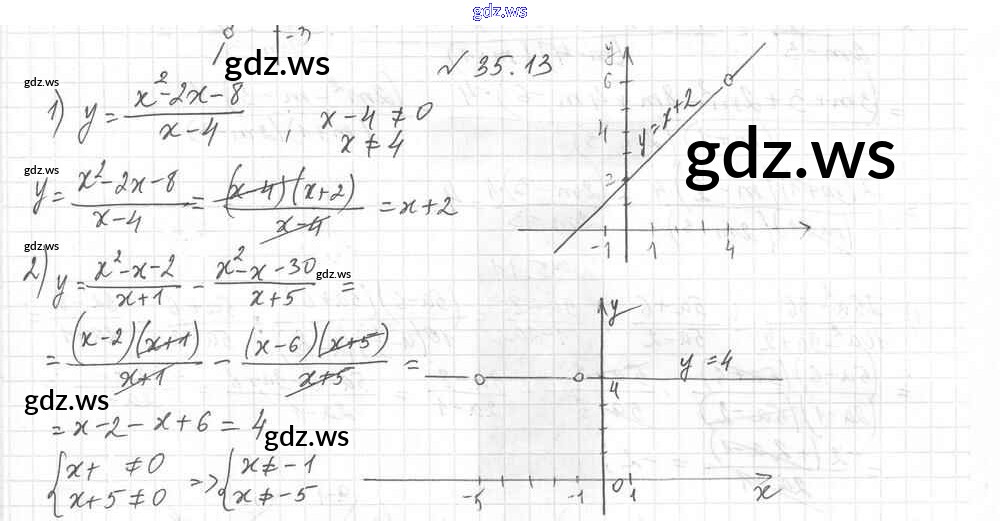 gdz.ws
-3
gdz.ws
№ 35.13
gdz.ws
1) y = (x²-2x-8)/(x-4) ; x-4 ≠ 0
x ≠ 4
gdz.ws
y = (x²-2x-8)/(x-4) = ((x-4)(x+2))/(x-4) = x+2
y
6
4
2
-1 1 4
y=x+2
gdz.ws
gdz.ws
2) y = (x²-x-2)/(x+1) - (x²-x-30)/(x+5) =
gdz.ws
= ((x-2)(x+1))/(x+1) - ((x-6)(x+5))/(x+5) =
gdz.ws
= x-2-x+6 = 4
gdz.ws
{x+ ≠0 => {x≠-1
{x+5≠0 {x≠-5
y
y=4
4
-5 -1 0 1 x